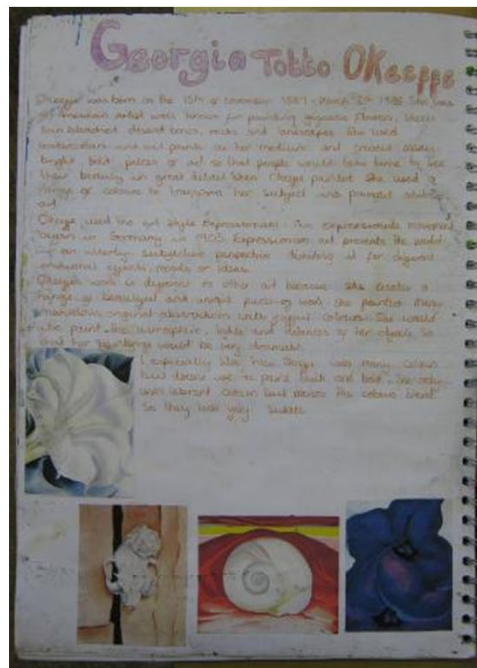 Georgia Totto OKeeffe
Okeeffe was born on the 15th of november 1887 - March 6th 1986 She was
an american artist well known for painting gigantic flowers, shells
sun bleached desert bones, rocks and landscapes. She used
watercolours and oil paints as her medium and created really
bright bold pieces of art so that people would take time to see
their beauty in great detail. When Okeeffe painted She used a
range of colours to transform her subject into powerful
art.
Okeeffe used the art Style Expressionism. The expressionists movement
began in Germany in 1905. Expressionism art presents the world
in an utterly subjective perspective for
emotional effects, moods or ideas.
Okeeffes work is different to other art because she creates a
range of beautiful and unique pieces of work she painted many
marvelous original abstractions with colours. She would
also paint the atmosphere, lights and distances of her objects so
that her paintings would be very dramatic.
I especially like how Okeeffe uses many colours
but doesnt use to paint thick and bold. She only
uses vibrant colours but makes the colours blend
So they look very subtle.